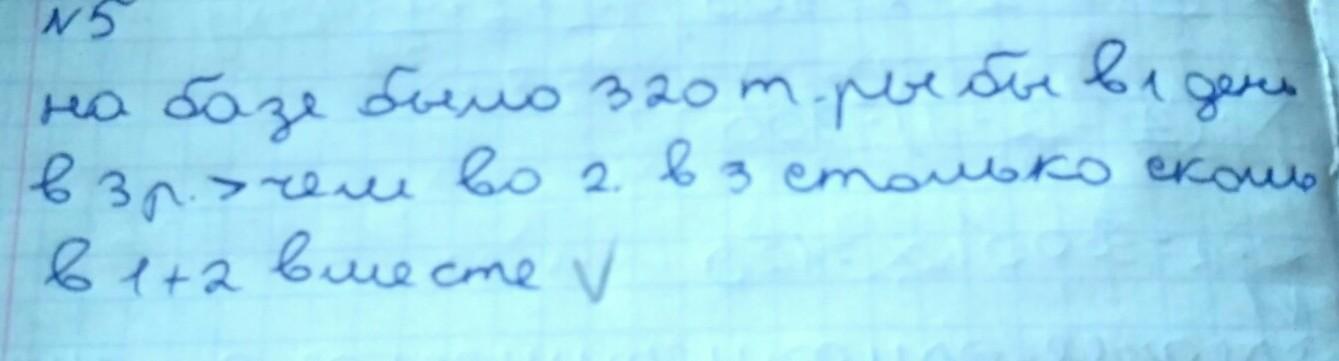 №5
на базе было 320 т. рыбы в 1 день
в 3 р. > чем во 2. в 3 столько сколь
в 1+2 вместе V